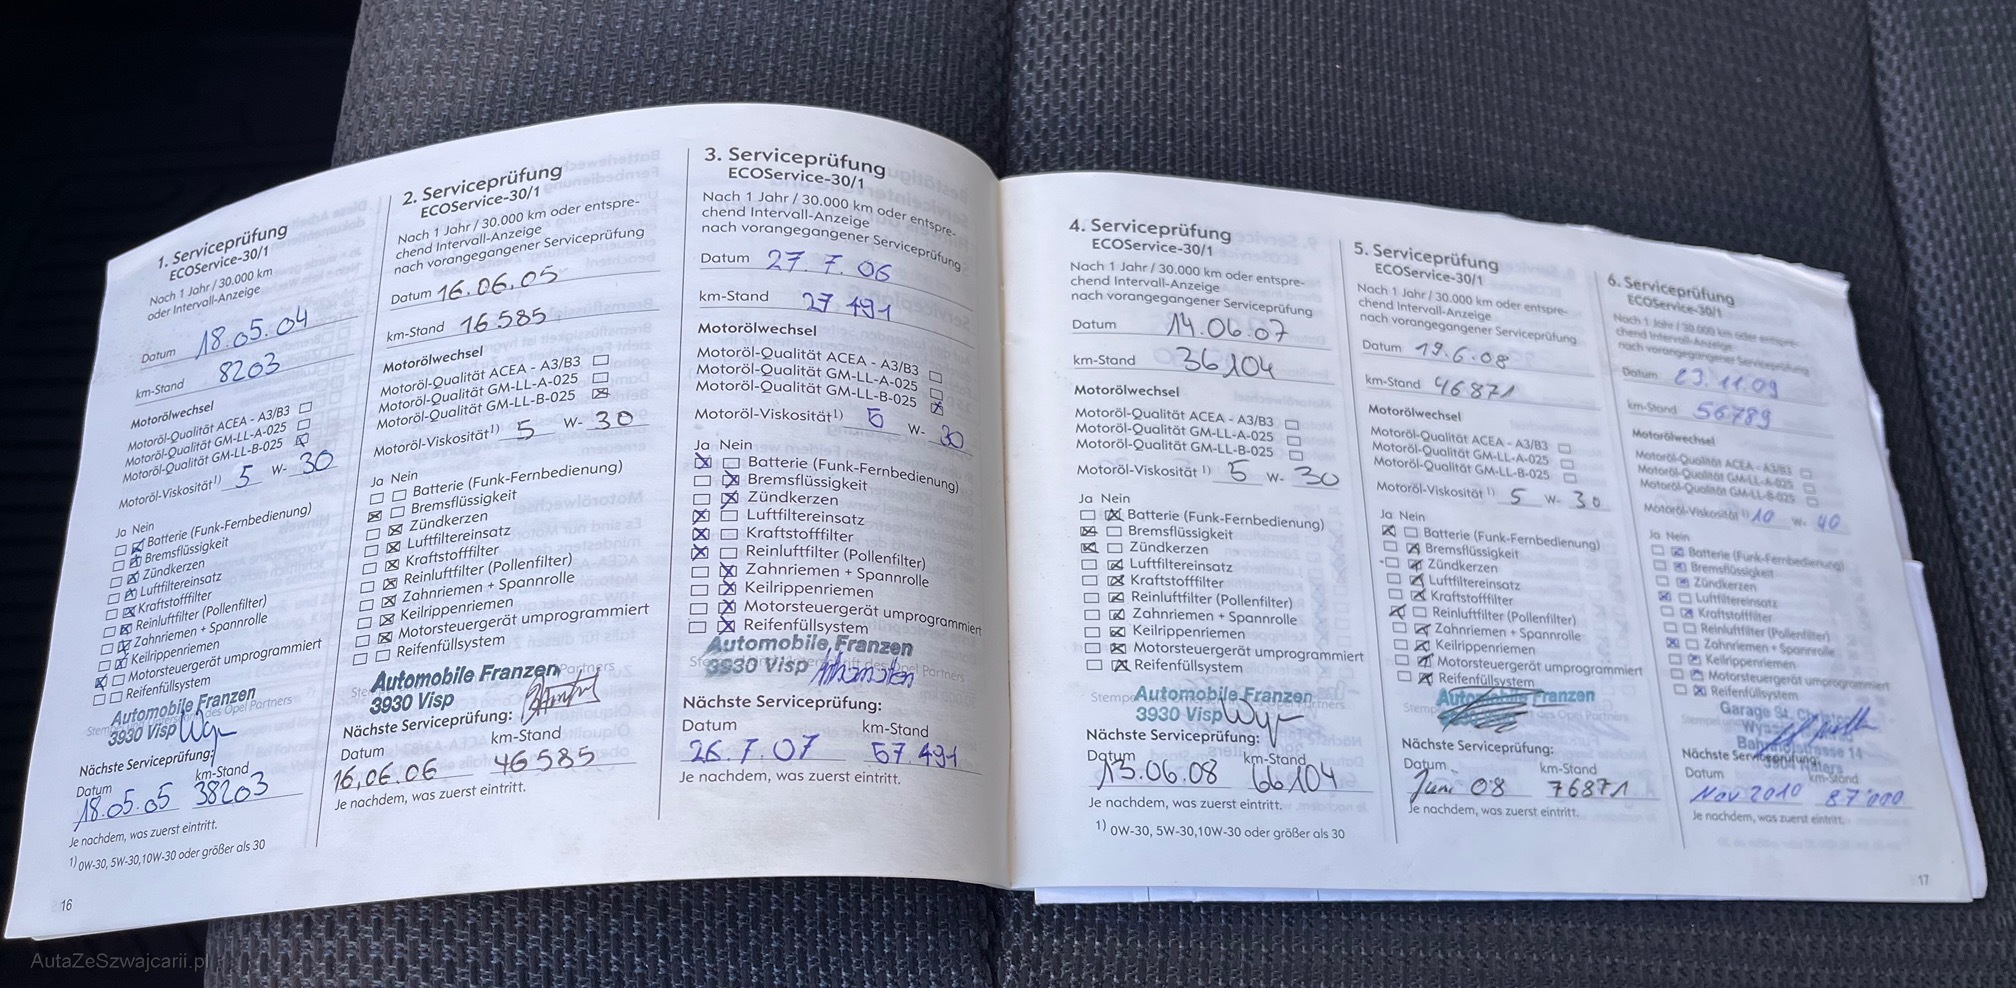 1. Serviceprüfung
ECOService-30/1
Nach 1 Jahr / 30.000 km
oder Intervall-Anzeige
Datum 18.05.04
km-Stand 8203
Motorölwechsel
Motoröl-Qualität ACEA - A3/B3
Motoröl-Qualität GM-LL-A-025
Motoröl-Qualität GM-LL-B-025
Motoröl-Viskosität1) 5 W- 30
Ja Nein
Batterie (Funk-Fernbedienung)
Bremsflüssigkeit
Zündkerzen
Luftfiltereinsatz
Kraftstofffilter
Reinluftfilter (Pollenfilter)
Zahnriemen + Spannrolle
Keilrippenriemen
Motorsteuergerät umprogrammiert
Reifenfüllsystem
Automobile Franzen
des Opel Partners
3930 Visp
Nächste Serviceprüfung:
Datum km-Stand
18.05.05 38203
Je nachdem, was zuerst eintritt.
1) 0W-30, 5W-30,10W-30 oder größer als 30
16
2. Serviceprüfung
ECOService-30/1
Nach 1 Jahr / 30.000 km oder entspre-
chend Intervall-Anzeige
nach vorangegangener Serviceprüfung
Datum 16.06.05
km-Stand 16585
Motorölwechsel
Motoröl-Qualität ACEA - A3/B3
Motoröl-Qualität GM-LL-A-025
Motoröl-Qualität GM-LL-B-025
Motoröl-Viskosität1) 5 W- 30
Ja Nein
Batterie (Funk-Fernbedienung)
Bremsflüssigkeit
Zündkerzen
Luftfiltereinsatz
Kraftstofffilter
Reinluftfilter (Pollenfilter)
Zahnriemen + Spannrolle
Keilrippenriemen
Motorsteuergerät umprogrammiert
Reifenfüllsystem
Automobile Franzen Partners
3930 Visp
Nächste Serviceprüfung:
Datum km-Stand
16.06.06 46585
Je nachdem, was zuerst eintritt.
3. Serviceprüfung
ECOService-30/1
Nach 1 Jahr / 30.000 km oder entspre-
chend Intervall-Anzeige
nach vorangegangener Serviceprüfung
Datum 27.7.06
km-Stand 27491
Motorölwechsel
Motoröl-Qualität ACEA - A3/B3
Motoröl-Qualität GM-LL-A-025
Motoröl-Qualität GM-LL-B-025
Motoröl-Viskosität1) 5 W- 30
Ja Nein
Batterie (Funk-Fernbedienung)
Bremsflüssigkeit
Zündkerzen
Luftfiltereinsatz
Kraftstofffilter
Reinluftfilter (Pollenfilter)
Zahnriemen + Spannrolle
Keilrippenriemen
Motorsteuergerät umprogrammiert
Reifenfüllsystem
Automobile Franzen
3930 Visp des Opel Partners
Nächste Serviceprüfung:
Datum km-Stand
26.7.07 57491
Je nachdem, was zuerst eintritt.
4. Serviceprüfung
ECOService-30/1
Nach 1 Jahr / 30.000 km oder entspre-
chend Intervall-Anzeige
nach vorangegangener Serviceprüfung
Datum 14.06.07
km-Stand 36104
Motorölwechsel
Motoröl-Qualität ACEA - A3/B3
Motoröl-Qualität GM-LL-A-025
Motoröl-Qualität GM-LL-B-025
Motoröl-Viskosität 1) 5 W- 30
Ja Nein
Batterie (Funk-Fernbedienung)
Bremsflüssigkeit
Zündkerzen
Luftfiltereinsatz
Kraftstofffilter
Reinluftfilter (Pollenfilter)
Zahnriemen + Spannrolle
Keilrippenriemen
Motorsteuergerät umprogrammiert
Reifenfüllsystem
Automobile Franzen
3930 Visp
Nächste Serviceprüfung:
Datum km-Stand
13.06.08 66104
Je nachdem, was zuerst eintritt.
1) 0W-30, 5W-30,10W-30 oder größer als 30
5. Serviceprüfung
ECOService-30/1
Nach 1 Jahr / 30.000 km oder entspre-
chend Intervall-Anzeige
nach vorangegangener Serviceprüfung
Datum 19.6.08
km-Stand 46871
Motorölwechsel
Motoröl-Qualität ACEA - A3/B3
Motoröl-Qualität GM-LL-A-025
Motoröl-Qualität GM-LL-B-025
Motoröl-Viskosität 1) 5 W- 30
Ja Nein
Batterie (Funk-Fernbedienung)
Bremsflüssigkeit
Zündkerzen
Luftfiltereinsatz
Kraftstofffilter
Reinluftfilter (Pollenfilter)
Zahnriemen + Spannrolle
Keilrippenriemen
Motorsteuergerät umprogrammiert
Reifenfüllsystem
Automobile Franzen
des Opel Partners
Nächste Serviceprüfung:
Datum km-Stand
Juni 08 76871
Je nachdem, was zuerst eintritt.
6. Serviceprüfung
ECOService-30/1
Nach 1 Jahr / 30.000 km oder entspre-
chend Intervall-Anzeige
nach vorangegangener Serviceprüfung
Datum 23.11.09
km-Stand 56789
Motorölwechsel
Motoröl-Qualität ACEA - A3/B3
Motoröl-Qualität GM-LL-A-025
Motoröl-Qualität GM-LL-B-025
Motoröl-Viskosität 1) 10 W- 40
Ja Nein
Batterie (Funk-Fernbedienung)
Bremsflüssigkeit
Zündkerzen
Luftfiltereinsatz
Kraftstofffilter
Reinluftfilter (Pollenfilter)
Zahnriemen + Spannrolle
Keilrippenriemen
Motorsteuergerät umprogrammiert
Reifenfüllsystem
Garage St.
14
Nächste Serviceprüfung:
Naters
Datum km-Stand
Nov 2010 87'000
Je nachdem, was zuerst eintritt.
17
AutaZeSzwajcarii.pl